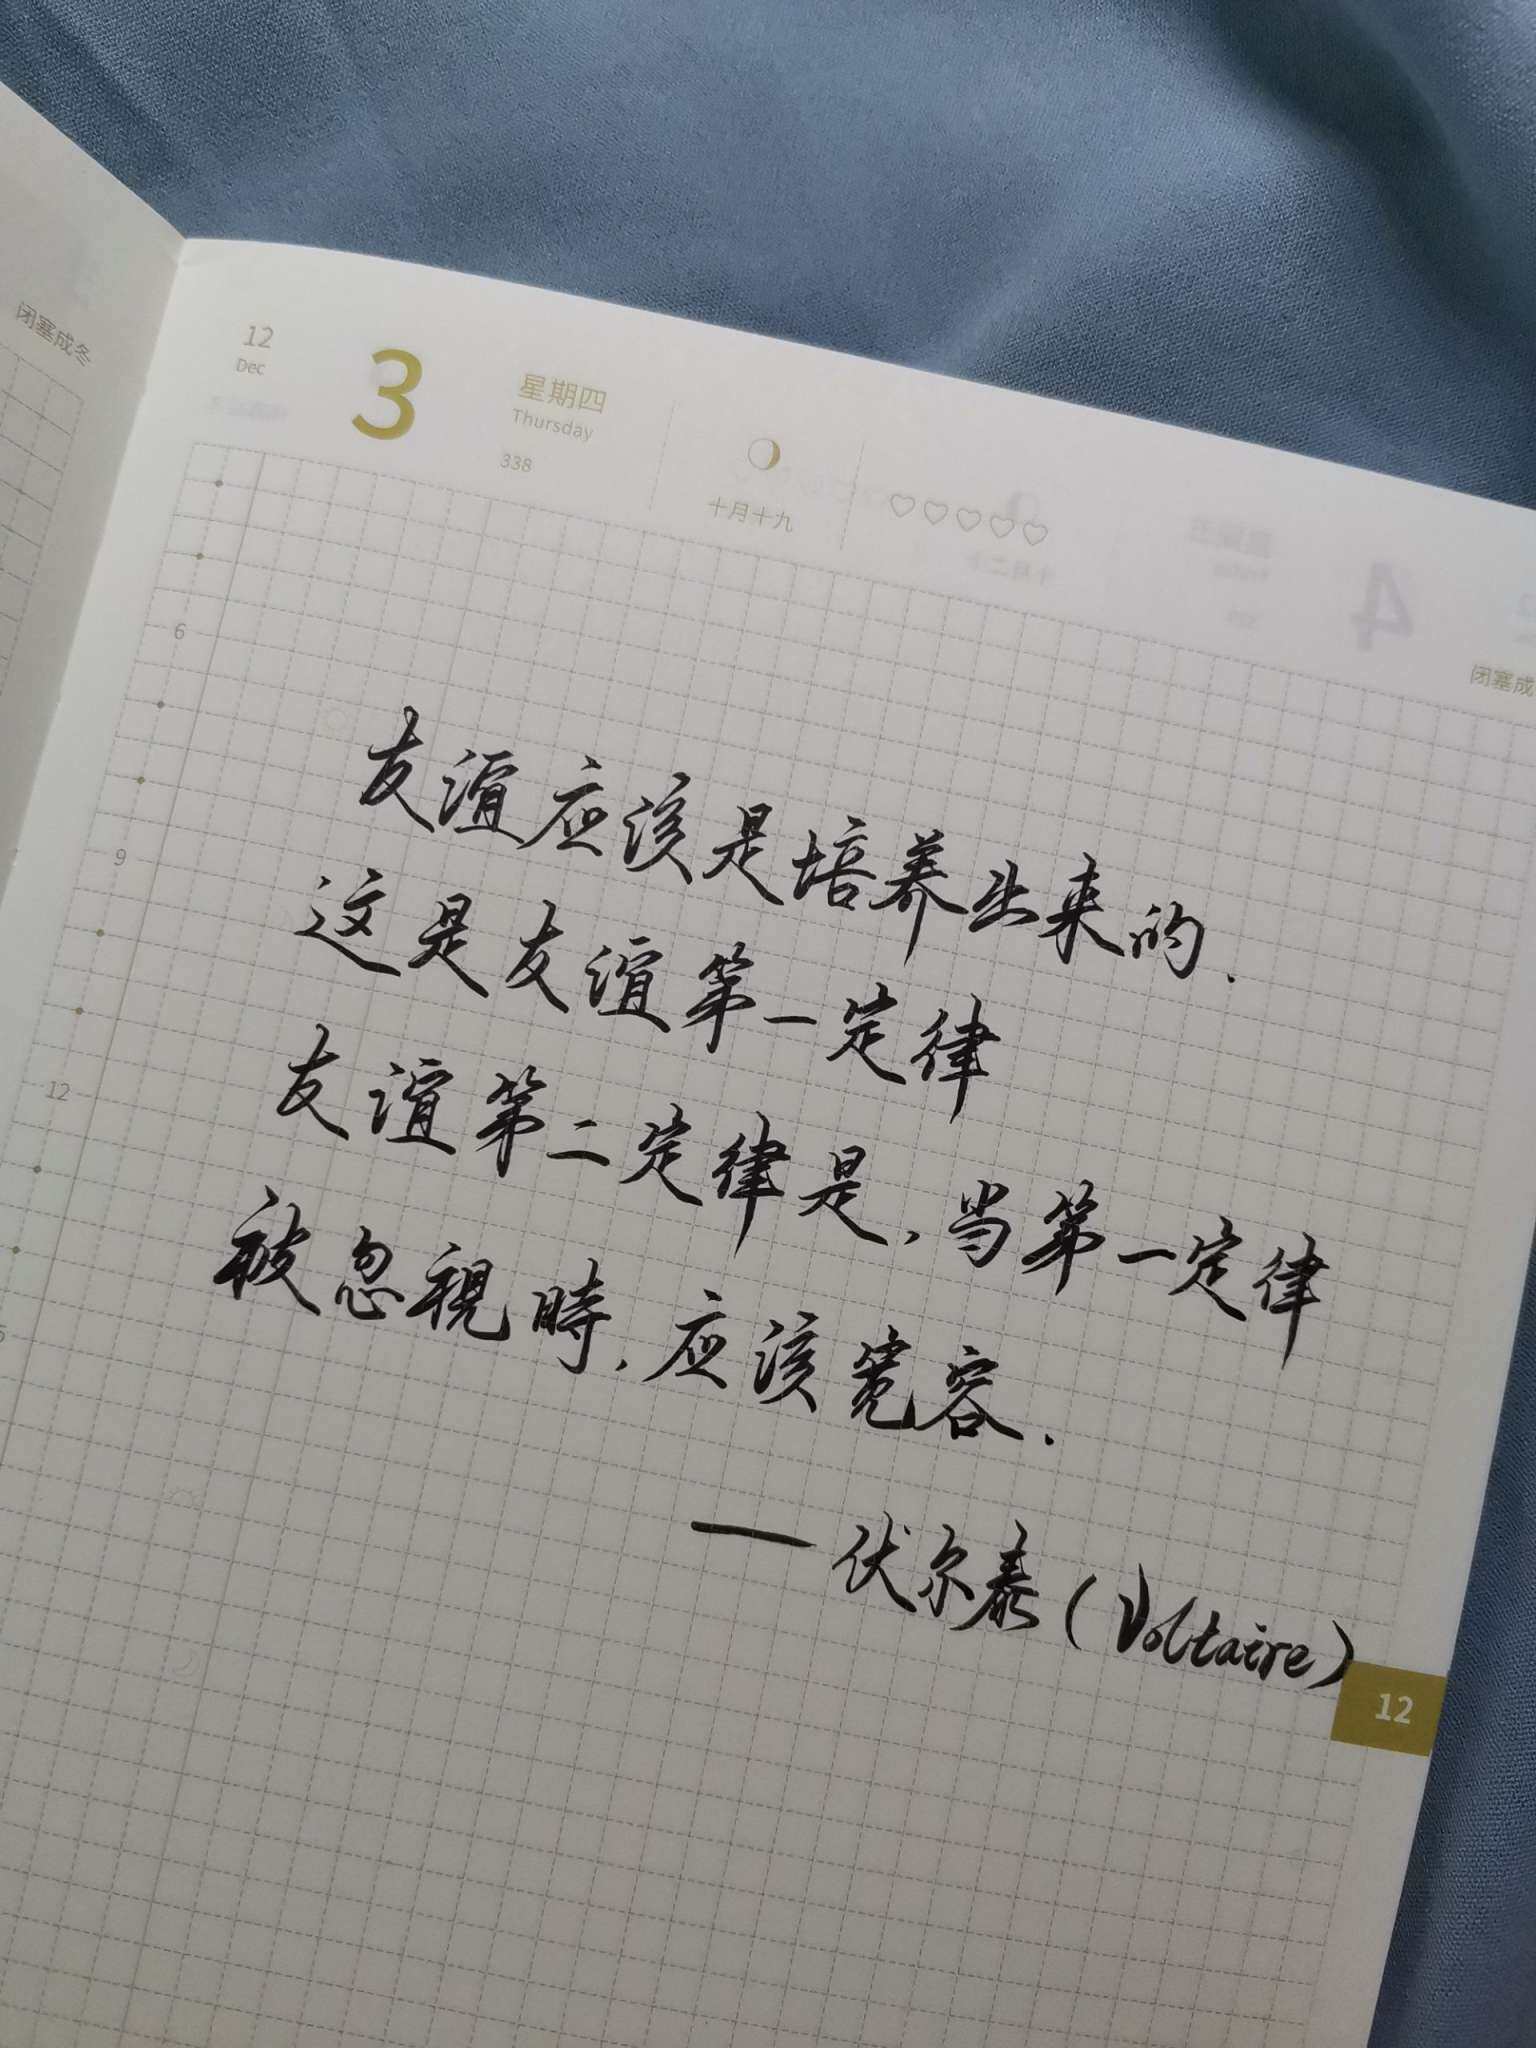 闭塞成冬
12
Dec
3
星期四
Thursday
338
十月十九
闭塞成
6
9
12
友谊应该是培养出来的.
这是友谊第一定律
友谊第二定律是,当第一定律
被忽視時,应该宽容.
—伏尔泰(Voltaire)
12